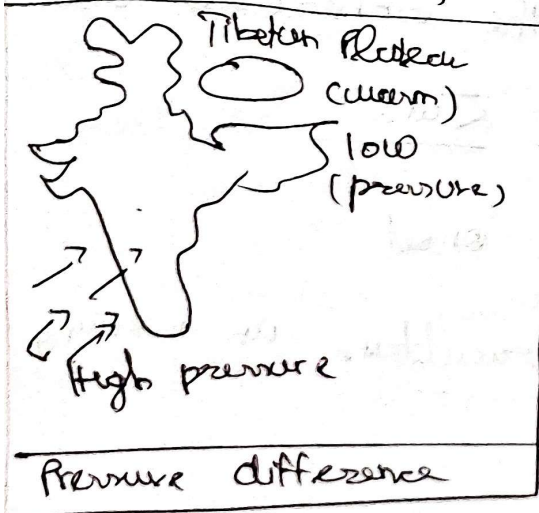 Tibetan Plateau
(warm)
low
(pressure)
High pressure
Pressure difference